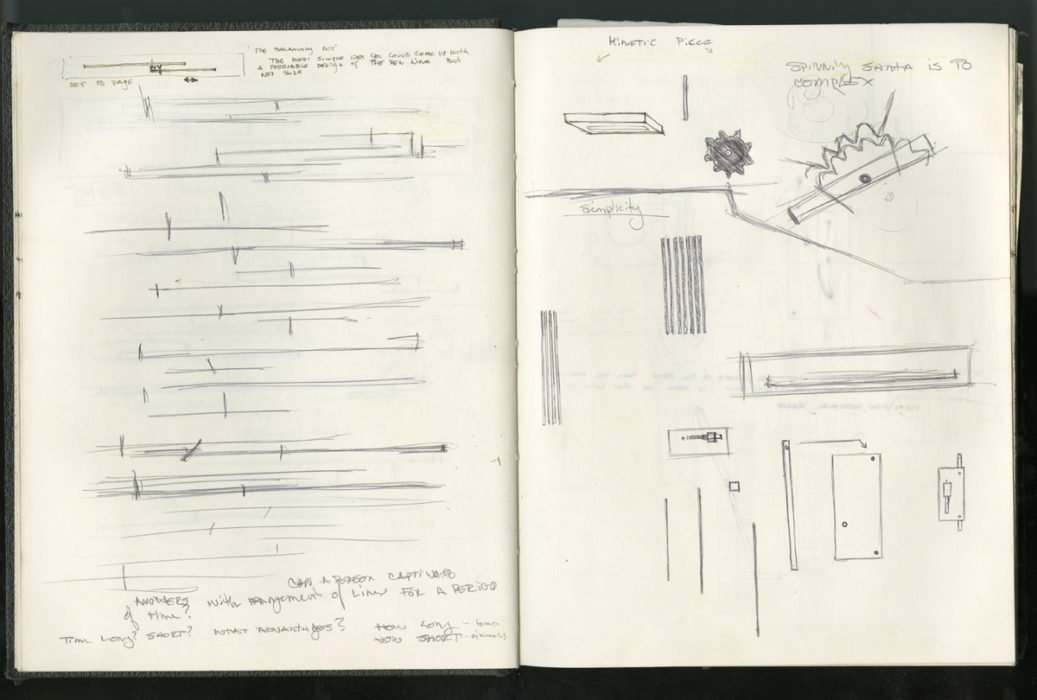 'THE BALANCING ACT'
"THE MOST SIMPLE IDEA YOU COULD COME UP WITH
A DESIRABLE DESIGN OF THE PEN LINE BUT
NOT SURE
SET TO PAGE
CAN A PERSON CAPTIVATE
ANOTHERS with arrangement of Lines FOR A PERIOD
of time?
Time Long? SHORT? WHAT ADVANTAGES? HOW LONG -
HOW SHORT -
KINETIC PIECE
SPINNING IS TO
COMPLEX
Simplicity